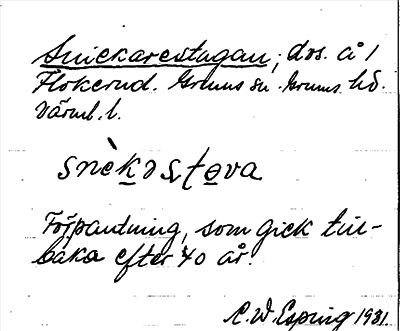 Snickarestugan, dos. å 1
Flokerud. Grums sn. Grums hd.
Värml. l.
snèkɔstova
Förpantning, som gick till-
baka efter 40 år.
C. W. Esping 1931.